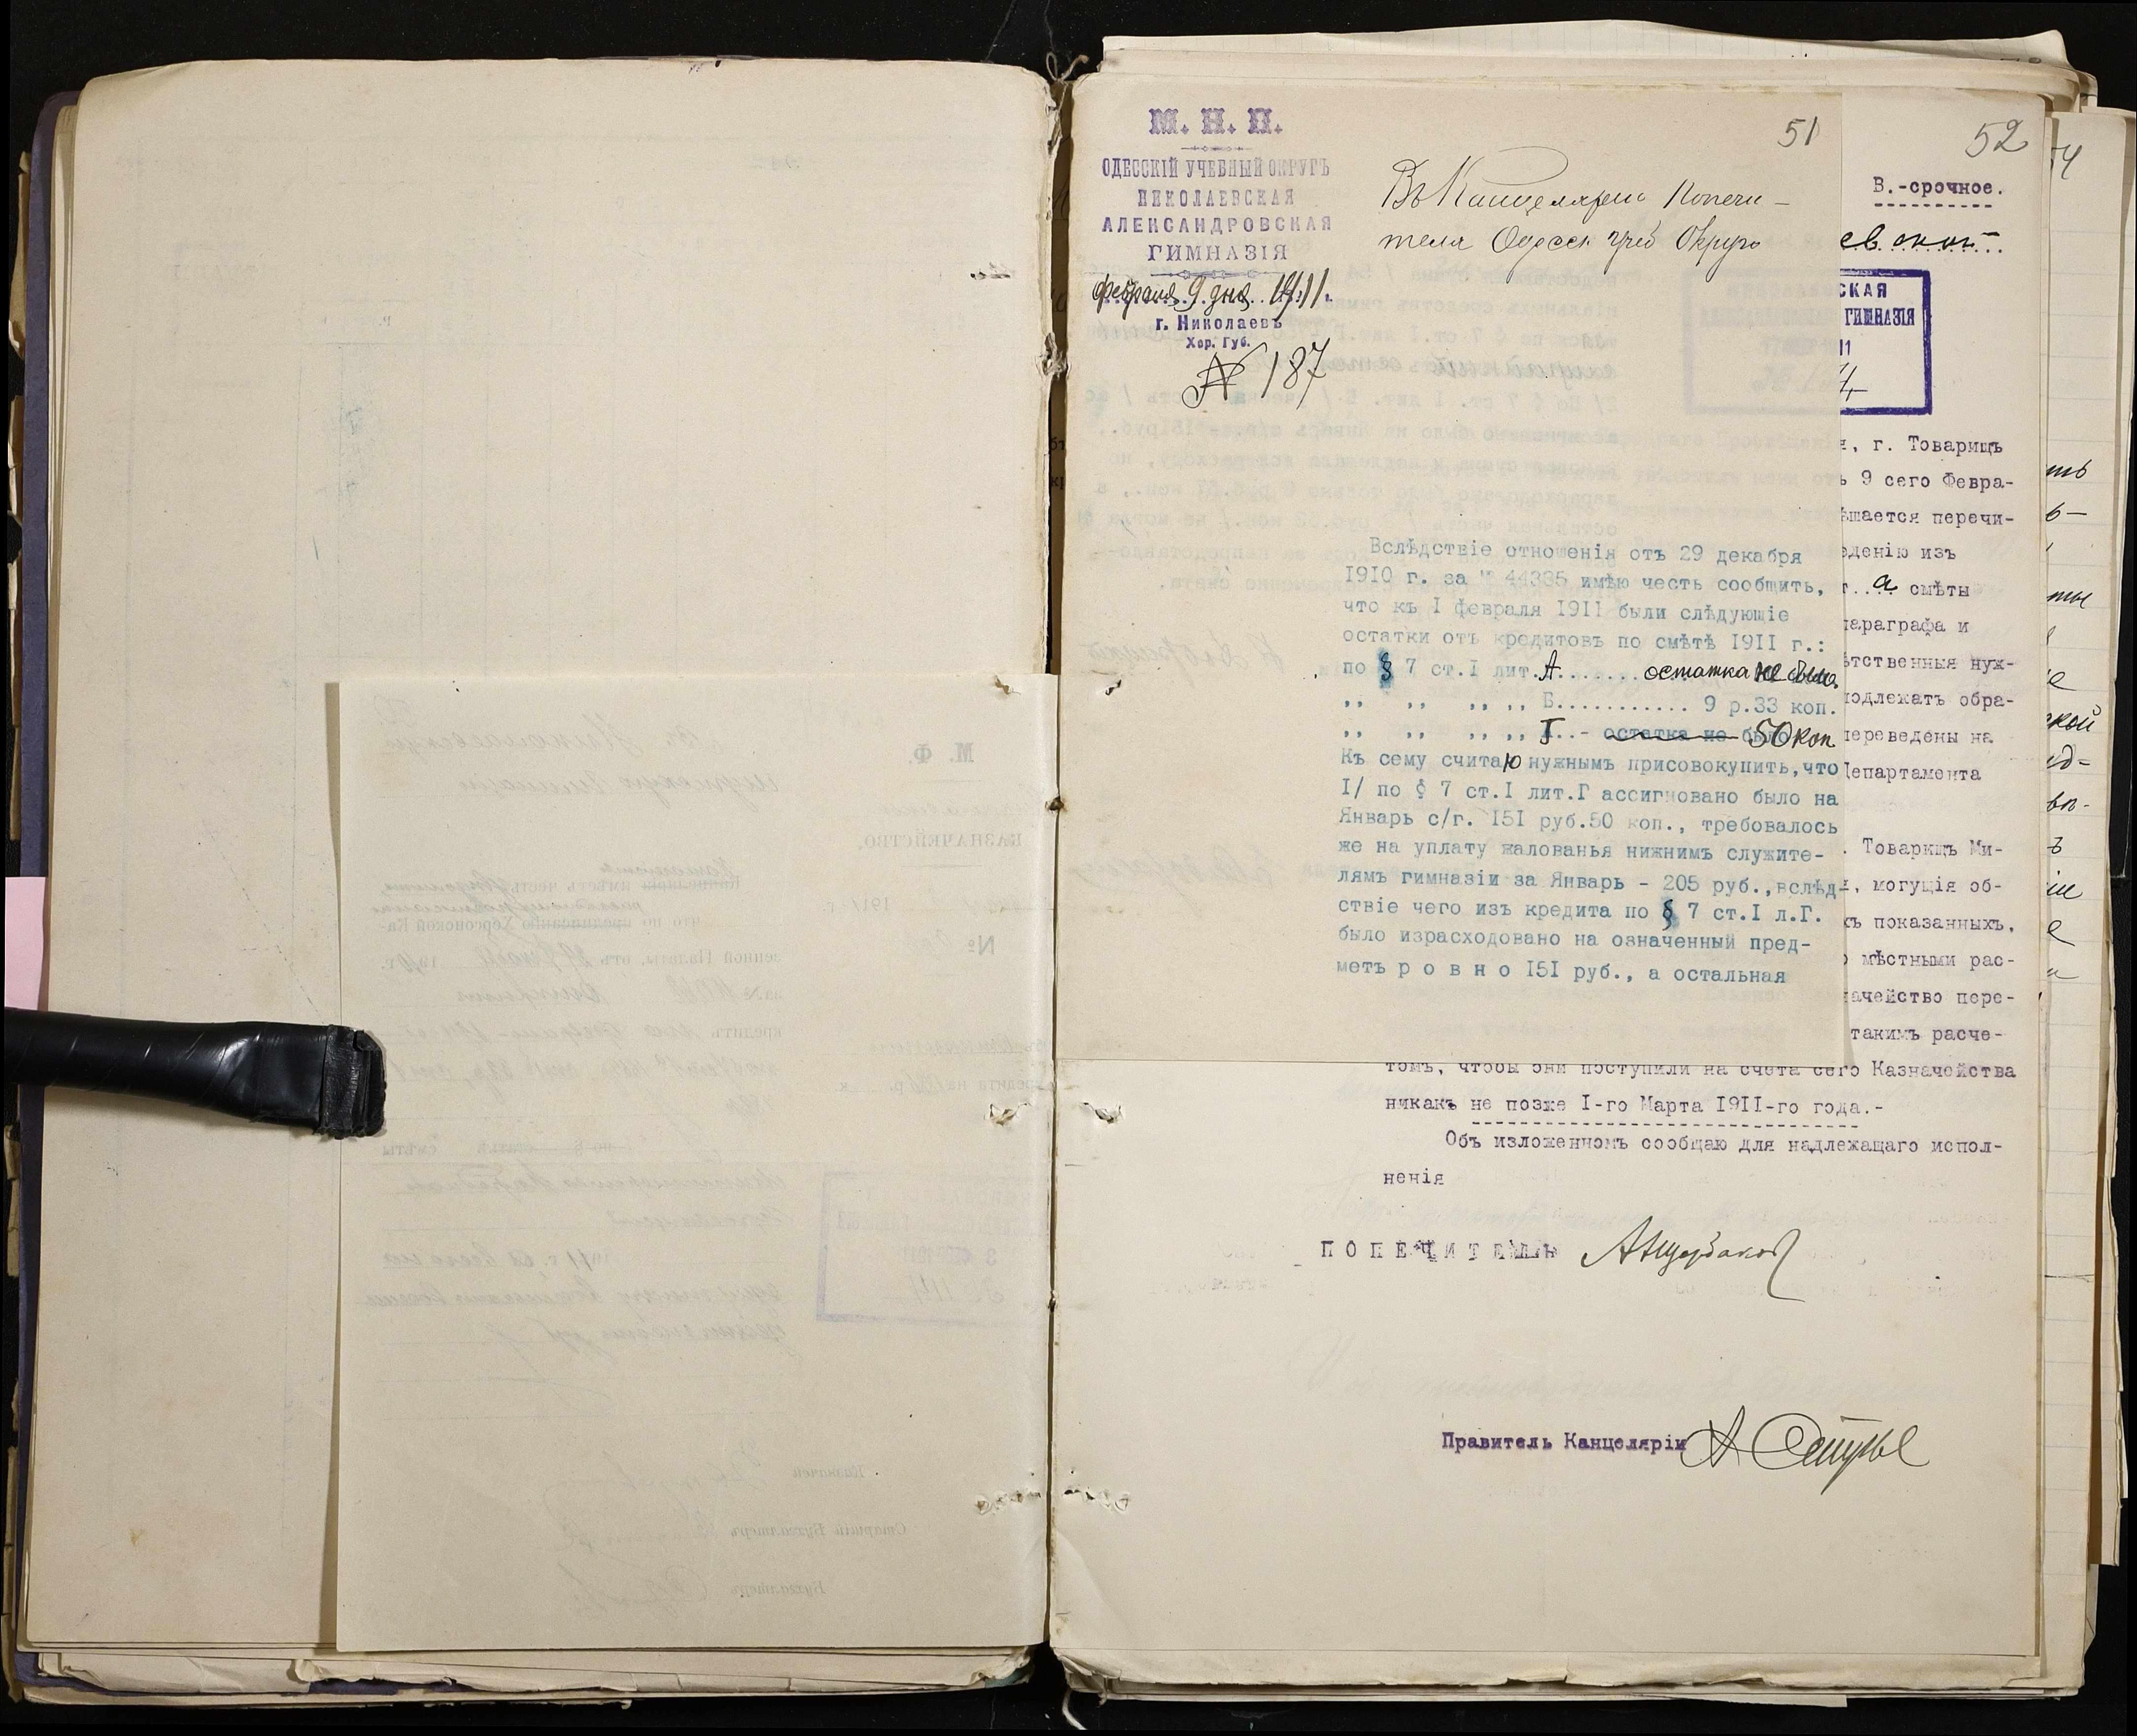 М. Н. П.
ОДЕССКІЙ УЧЕБНЫЙ ОКРУГЪ
НИКОЛАЕВСКАЯ
АЛЕКСАНДРОВСКАЯ
ГИМНАЗІЯ
февраля 9 дня 1911 г.
г. Николаевъ
Хер. Губ.
№ 187
51
Въ Канцелярію Попечи-
теля Одесск Учеб Округа
Вслѣдствіе отношенія отъ 29 декабря
1910 г. за № 44335 имѣю честь сообщить,
что къ I февраля 1911 были слѣдующіе
остатки отъ кредитовъ по смѣтѣ 1911 г.:
по § 7 ст.I лит.А....... остатка не было
,, ,, ,, ,, Б............ 9 р.33 коп.
,, ,, ,, ,, Г..- остатка не было 50 коп
Къ сему считаю нужнымъ присовокупить,что
I/ по § 7 ст.I лит.Г ассигновано было на
Январь с/г. 151 руб.50 коп., требовалось
же на уплату жалованья нижнимъ служите-
лямъ гимназіи за Январь - 205 руб.,вслѣд-
ствіе чего изъ кредита по § 7 ст.I л.Г.
было израсходовано на означенный пред-
метъ р о в н о 151 руб., а остальная
52
В.-срочное.
евской
СКАЯ
ГИМНАЗІЯ
11
г. Товарищъ
9 сего Февра-
шается перечи-
денію изъ
а смѣты
параграфа и
ѣтственныя нуж-
подлежатъ обра-
переведены на
Департамента
Товарищъ Ми-
могущія об-
показанныхъ,
мѣстными рас-
ачейство пере-
такимъ расче-
томъ, чтобы они поступили на счета сего Казначейства
никакъ не позже I-го Марта 1911-го года.-
Объ изложенномъ сообщаю для надлежащаго испол-
ненія
П О П Е Ч И Т Е Л Ь АЩербаков
Правитель Канцеляріи А